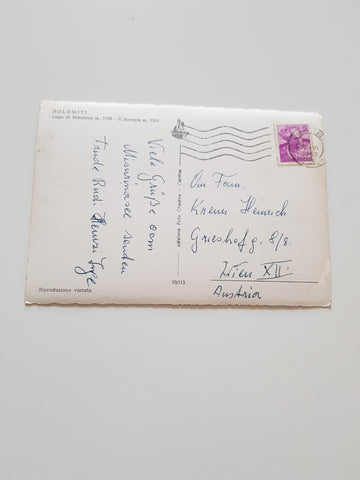 DOLOMITI
Lago di Misurina m. 1756 - Il Sorapis m. 3205
Viele Grüße vom
Misurinasee senden
Trude Rudi Heinzi Inge
Riproduzione vietata
10/113
An Fam.
Krenn Heinrich
Grieshofg. 8/8.
Wien XII.
Austria